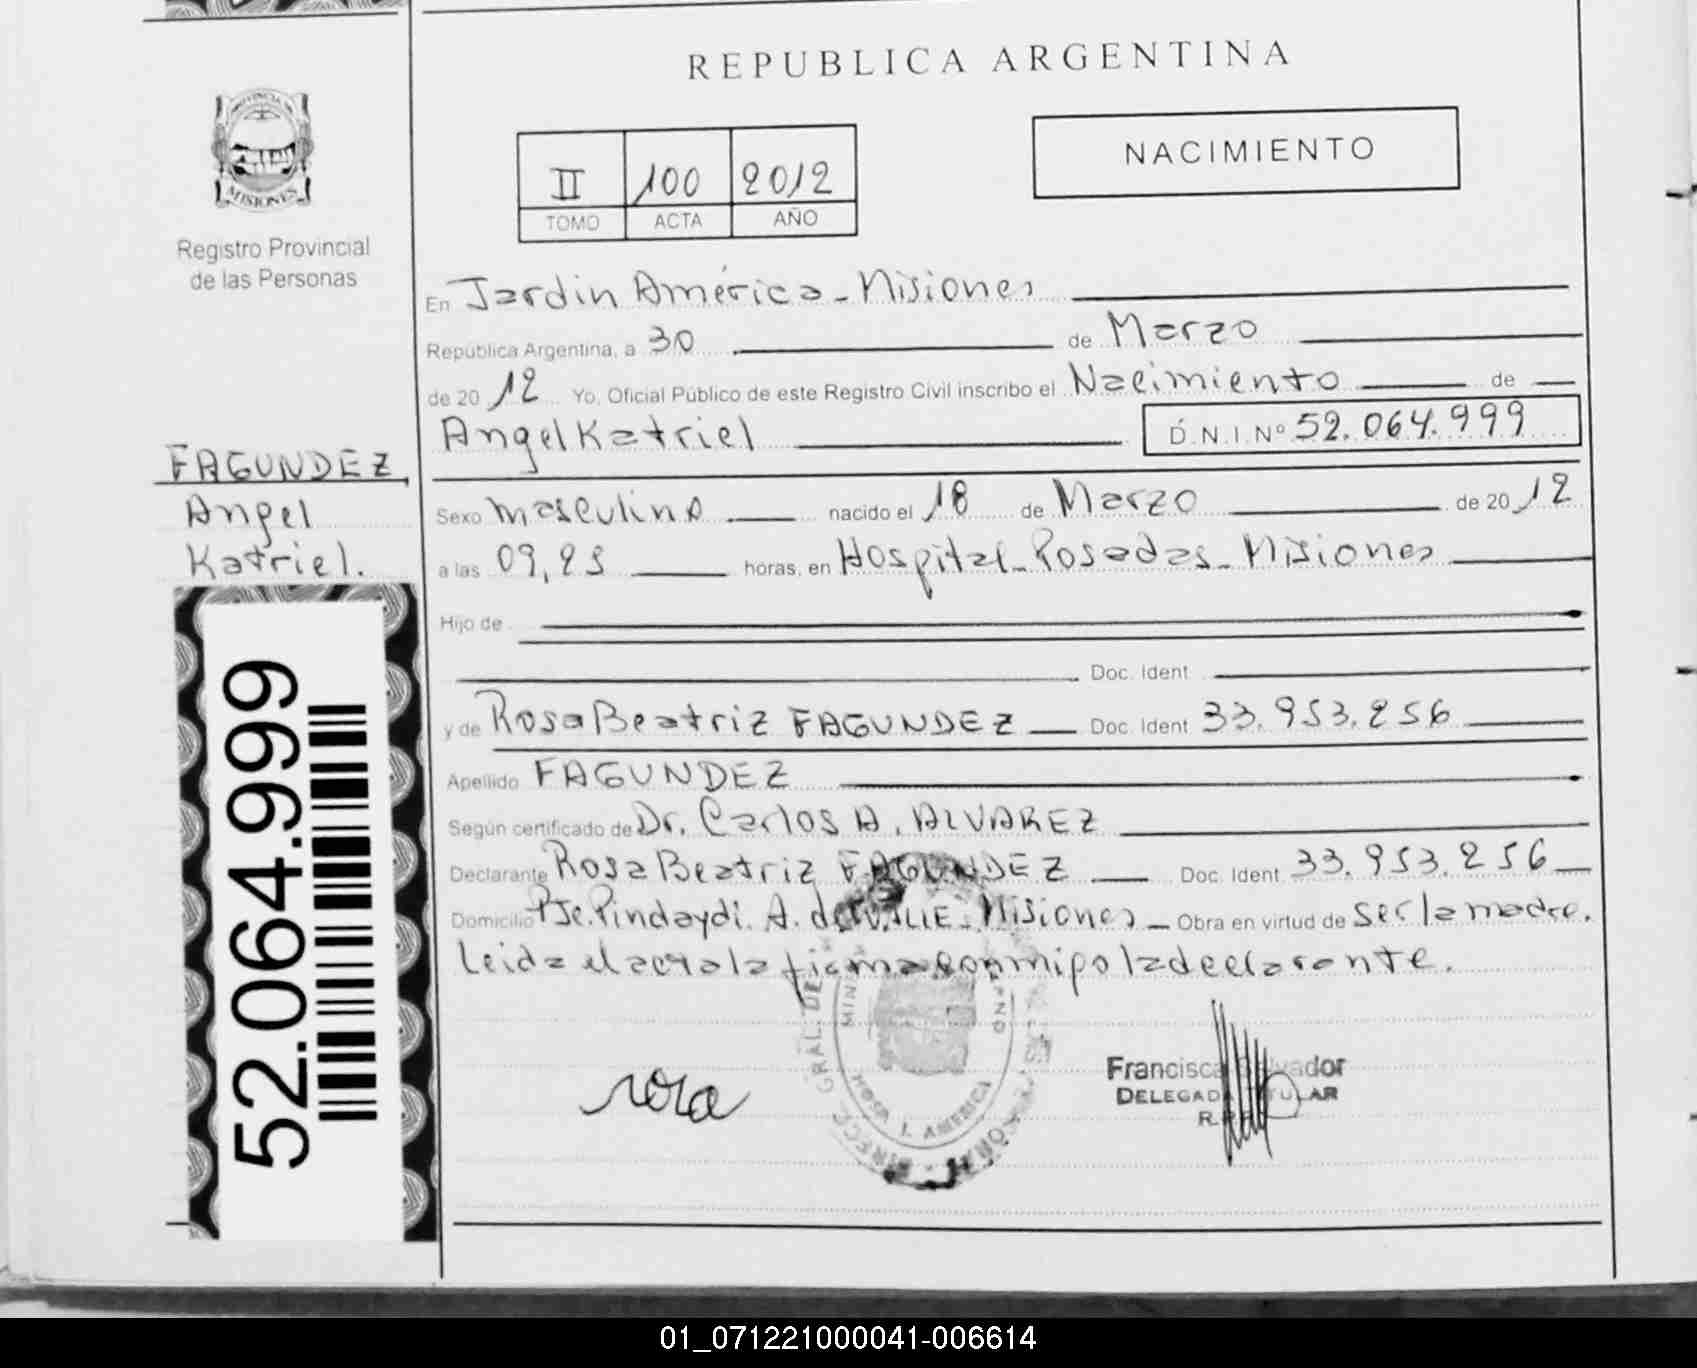 REPUBLICA ARGENTINA
PROVINCIA DE
MISIONES
Registro Provincial
de las Personas
II 100 2012
TOMO ACTA AÑO
NACIMIENTO
En Jardin América - Misiones
República Argentina, a 30 de Marzo
de 2012 Yo, Oficial Público de este Registro Civil inscribo el Nacimiento de
Angel Katriel D.N.I. Nº 52.064.999
FAGUNDEZ,
Angel
Katriel.
Sexo masculino nacido el 18 de Marzo de 2012
a las 09,25 horas, en Hospital - Posadas - Misiones
Hijo de
Doc. Ident
y de Rosa Beatriz FAGUNDEZ Doc. Ident 33.953.256
Apellido FAGUNDEZ
Según certificado de Dr. Carlos A. ALVAREZ
Declarante Rosa Beatriz FAGUNDEZ Doc. Ident. 33.953.256
Domicilio Pje. Pindaydi. A. del VALLE - Misiones - Obra en virtud de ser la madre.
Leida el acta la firma conmigo la declarante.
rosa
DIRECC. GRAL. DE
J. AMERICA
Francisca Salvador
DELEGADA TITULAR
52.064.999
01_071221000041-006614